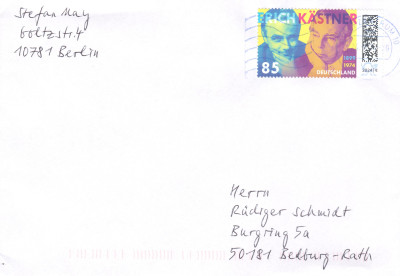 Stefan May
Goltzstr. 4
10781 Berlin
ERICH KÄSTNER
1899
1974
85 DEUTSCHLAND
Herrn
Rüdiger Schmidt
Burgring 5a
50181 Bedburg-Rath